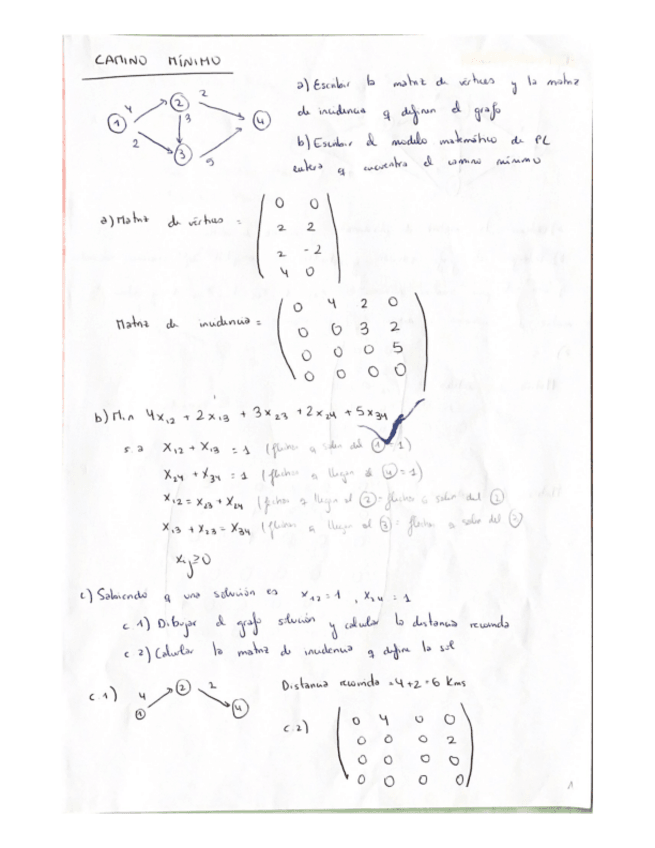 CAMINO MÍNIMO
a) Escribir la matriz de vértices y la matriz
de incidencia q definen el grafo
b) Escribir el modelo matemático de PL
entera q encuentra el camino mínimo
1 4 2 2 4 3 2 3 5
a) Matriz de vértices =
0 0
2 2
2 -2
4 0
Matriz de incidencia =
0 4 2 0
0 0 3 2
0 0 0 5
0 0 0 0
b) Min 4x12 + 2x13 + 3x23 + 2x24 + 5x34
s.a x12 + x13 = 1 (flechas q salen del 1 = 1)
x24 + x34 = 1 (flechas q llegan a 4 = 1)
x12 = x23 + x24 (flechas q llegan al 2 = flechas q salen del 2)
x13 + x23 = x34 (flechas q llegan al 3 = flechas q salen del 3)
xij ≥ 0
c) Sabiendo q una solución es x12 = 1, x24 = 1
c.1) Dibujar el grafo solución y calcular la distancia recorrida
c.2) Calcular la matriz de incidencia q define la sol
c.1) 1 4 2 2 4
Distancia recorrida = 4+2 = 6 Kms
c.2)
0 4 0 0
0 0 0 2
0 0 0 0
0 0 0 0
1